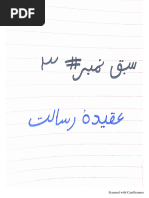 سبق نمبر # ۳
عقیدۂ رسالت
Scanned with CamScanner